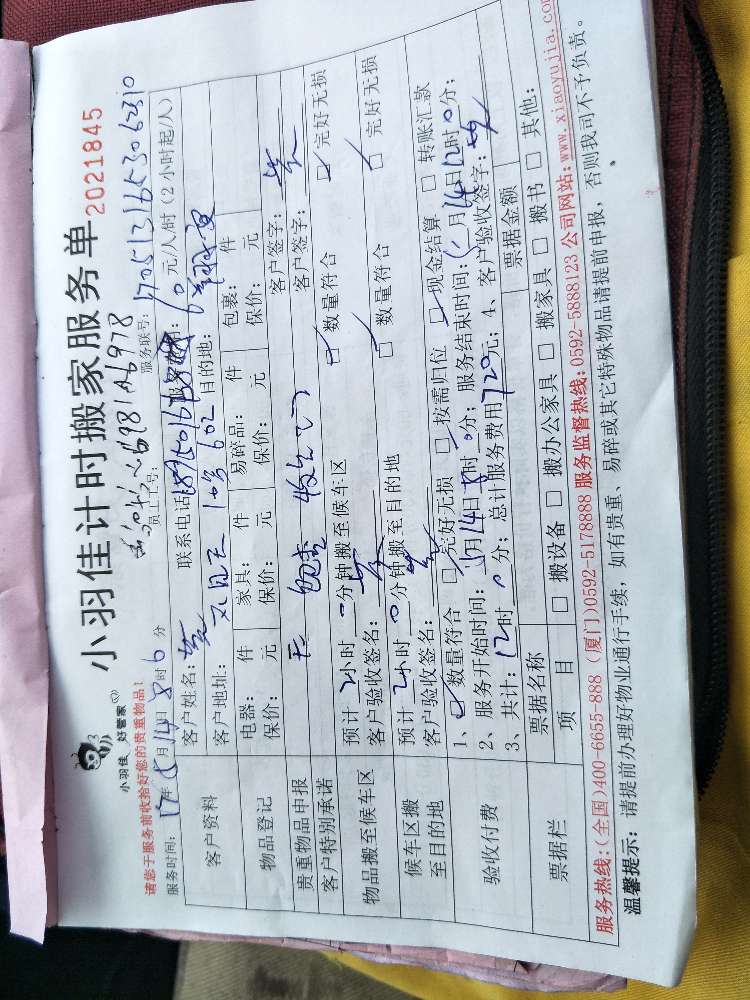 小羽佳 好管家
小羽佳计时搬家服务单
2021845
请您于服务前收拾好您的贵重物品!
员工工号: 6981 A6978
服务时间: 17年5月14日8时6分
服务联号: 1705131653062310
客户资料
客户姓名: 黄 联系电话
60元/人/时 (2小时起/人)
客户地址: 602 目的地:
物品登记
电器: 件 家具: 件 易碎品: 件 包裹: 件
保价: 元 保价: 元 保价: 元 保价: 元
贵重物品申报 无 客户签字: 黄
客户特别承诺 客户签字:
物品搬至候车区
预计 2小时 0分钟搬至候车区 ☑ 数量符合 ☑ 完好无损
客户验收签名: 黄
候车区搬至目的地
预计 2小时 0分钟搬至目的地 ☑ 数量符合 ☑ 完好无损
客户验收签名: 黄
验收付费
1、☑ 数量符合 □ 完好无损 □ 按需归位 □ 现金结算 □ 转账汇款
2、服务开始时间: 5月14日8时0分; 服务结束时间: 5月14日12时0分;
3、共计: 12时0分; 总计服务费用720元; 4、客户验收签字: 黄
票据栏
票据名称 票据金额
项目 □ 搬设备 □ 搬办公家具 □ 搬家具 □ 搬书 □ 其他:
服务热线:(全国)400-6655-888 (厦门)0592-5178888 服务监督热线:0592-5888123 公司网站:www.xiaoyujia.com
温馨提示: 请提前办理好物业通行手续, 如有贵重、易碎或其它特殊物品请提前申报, 否则我司不予负责。